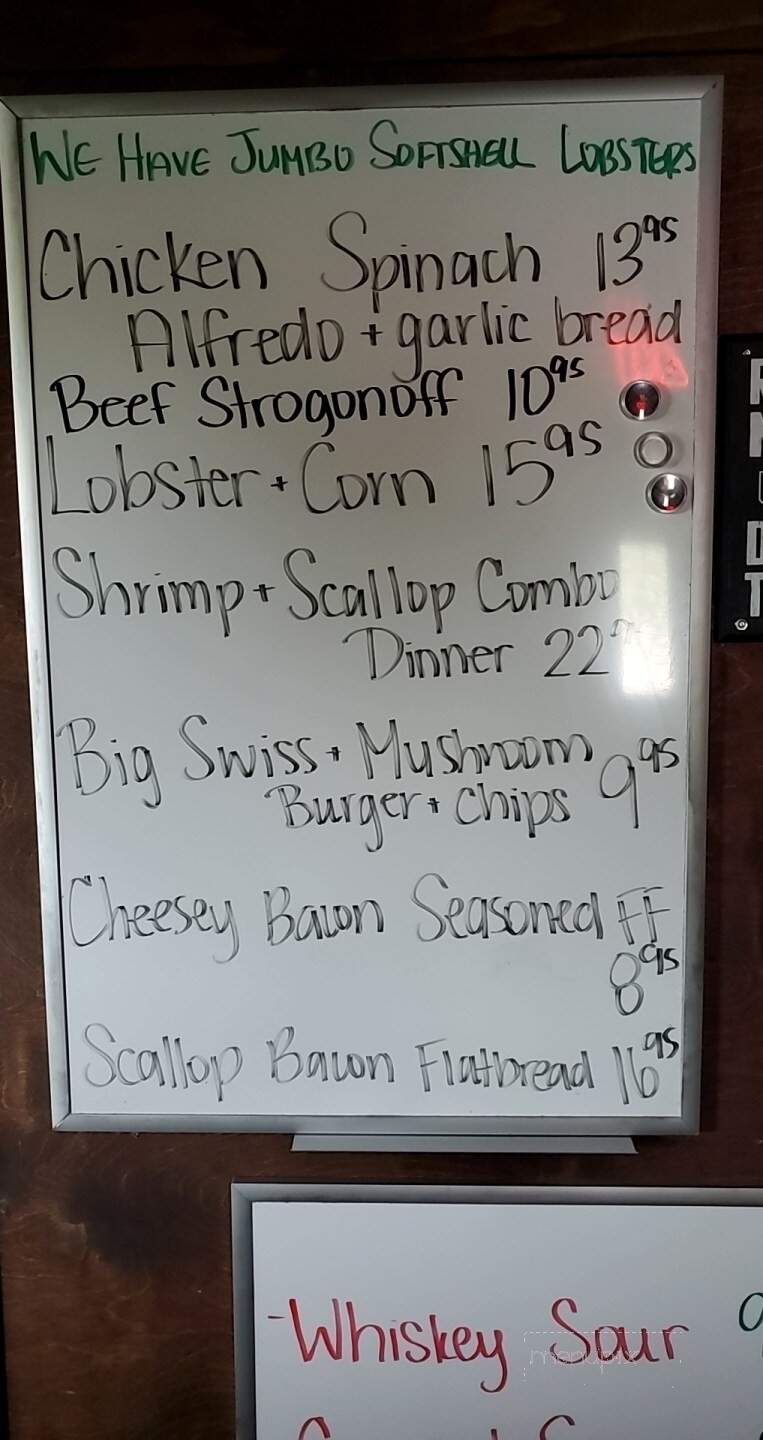 WE HAVE JUMBO SOFTSHELL LOBSTERS
Chicken Spinach 13 95
Alfredo + garlic bread
Beef Strogonoff 10 95
Lobster + Corn 15 95
Shrimp + Scallop Combo
Dinner 22
Big Swiss + Mushroom
Burger + Chips 9 95
Cheesey Bacon Seasoned FF
8 95
Scallop Bacon Flatbread 16 95
- Whiskey Sour
menupix